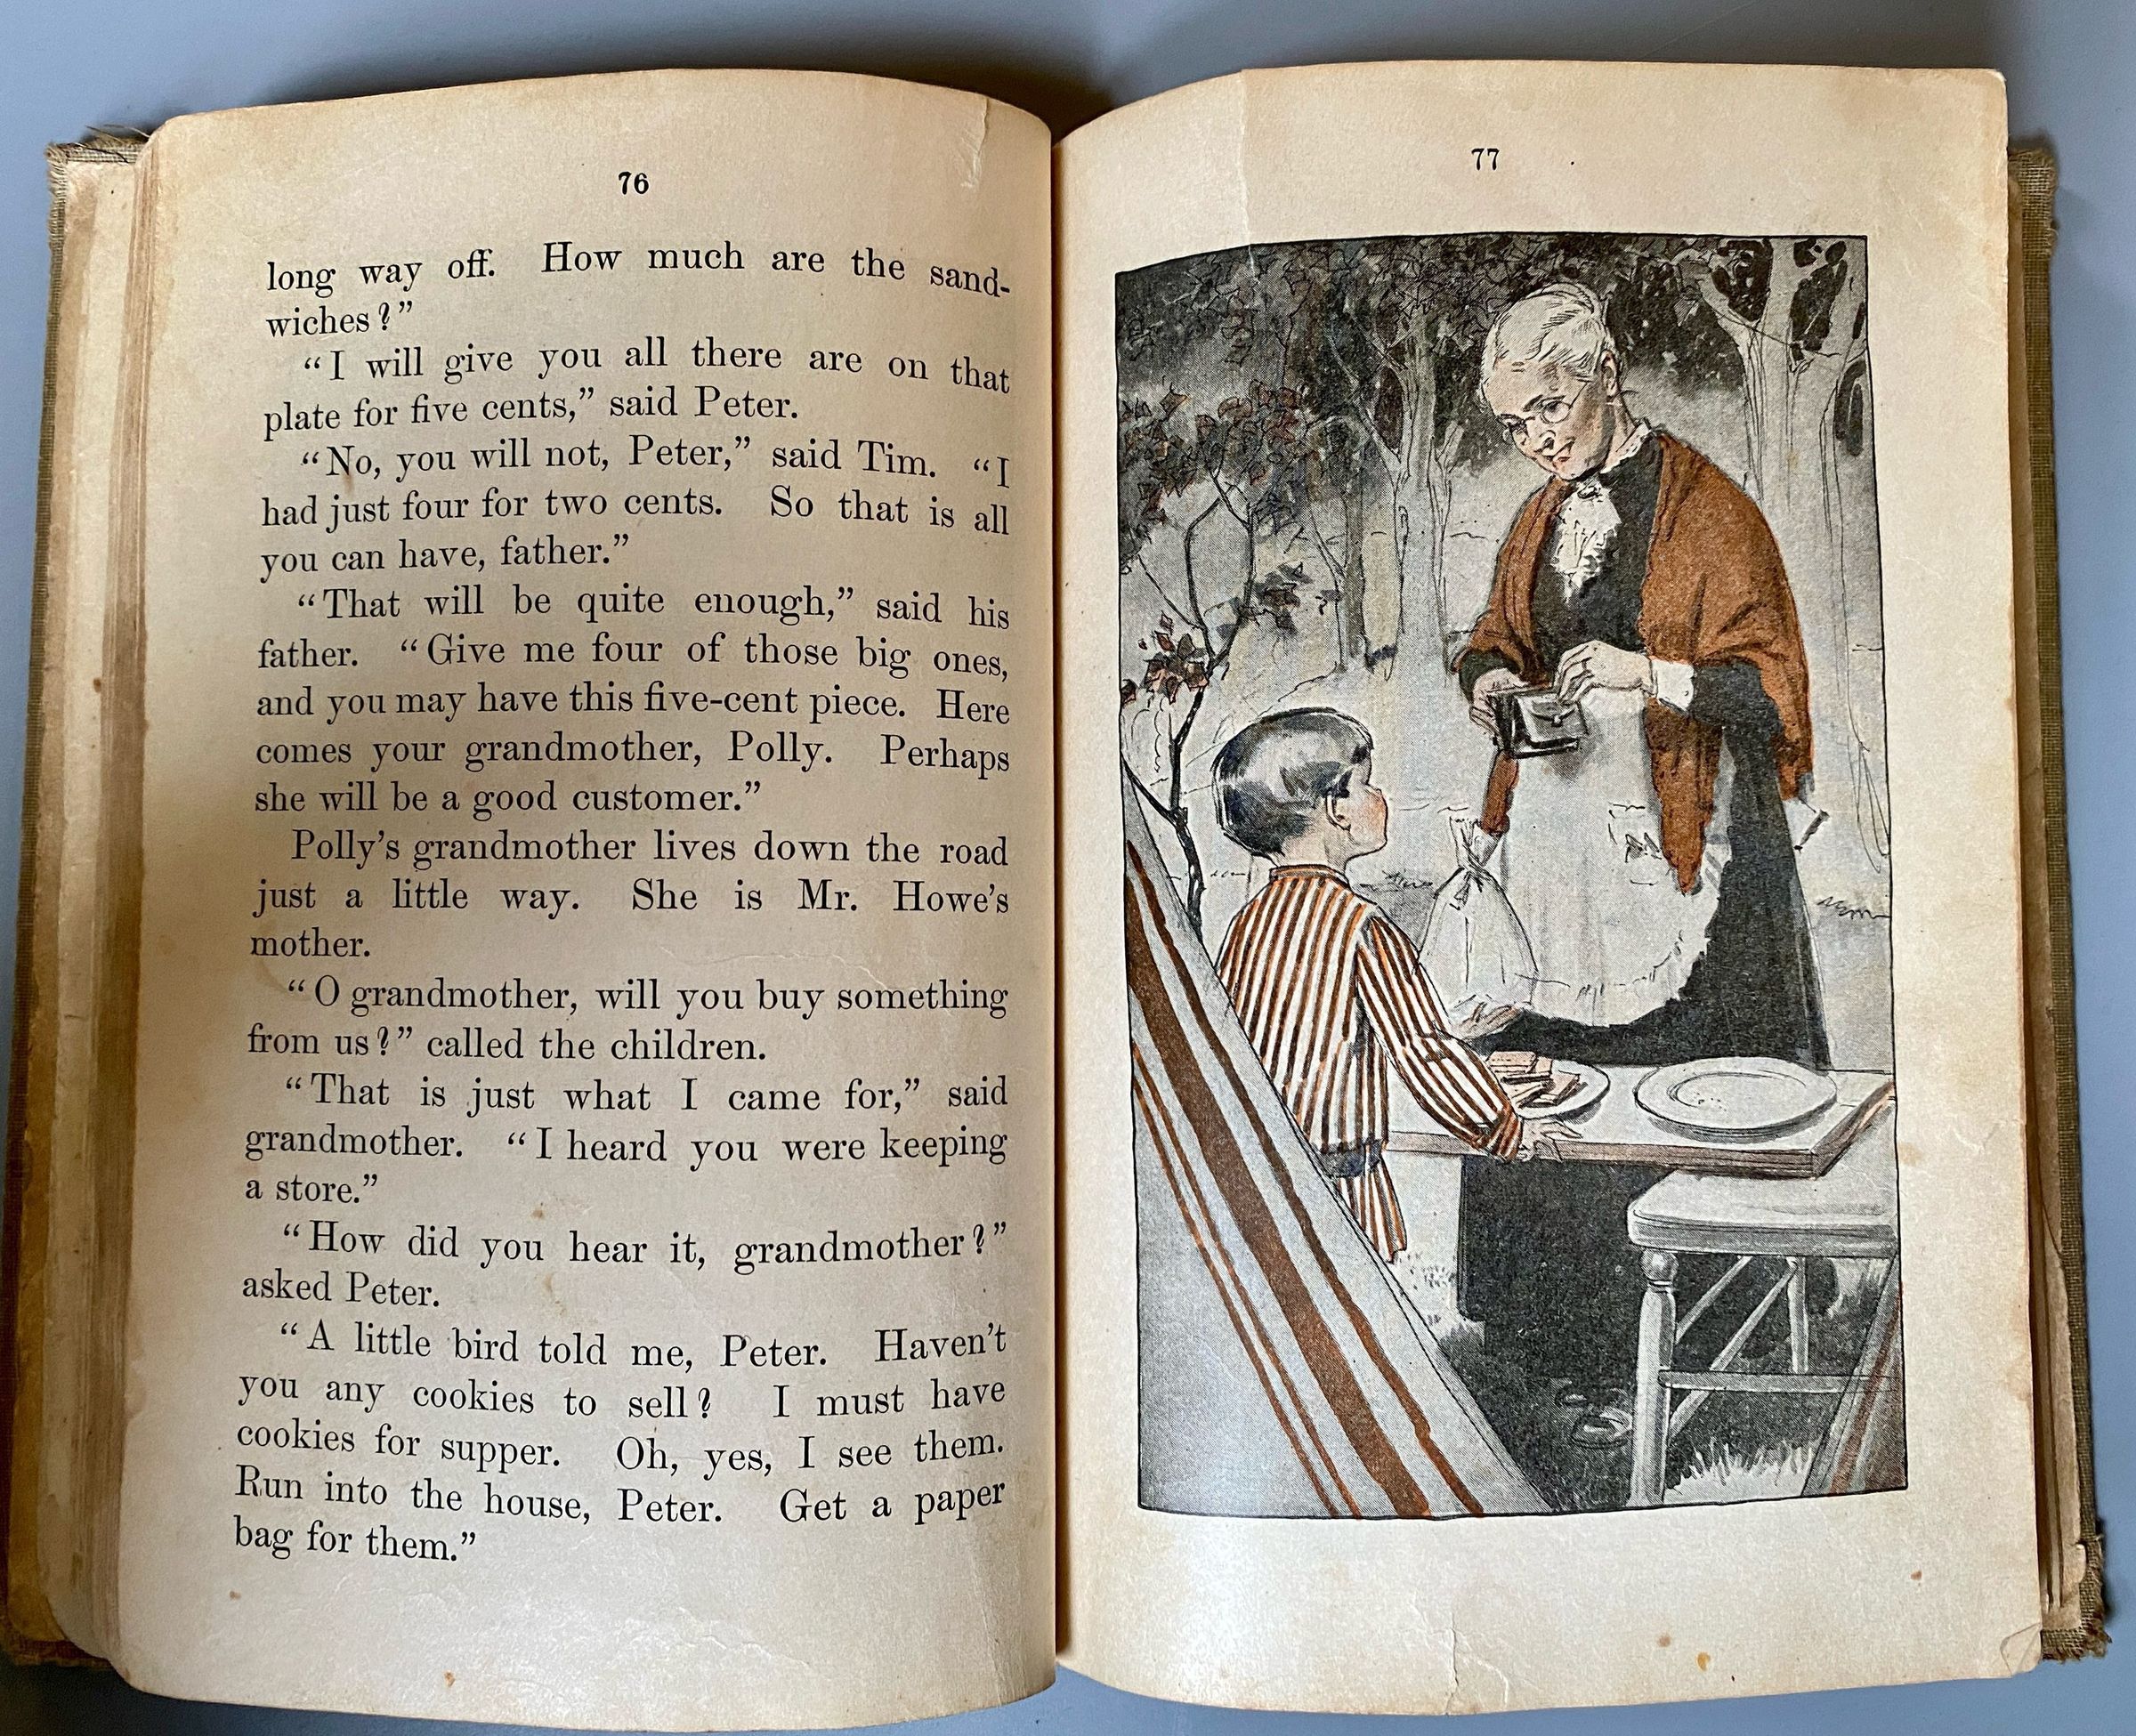 76
long way off. How much are the sand-
wiches?”
“I will give you all there are on that
plate for five cents,” said Peter.
“No, you will not, Peter,” said Tim. “I
had just four for two cents. So that is all
you can have, father.”
“That will be quite enough,” said his
father. “Give me four of those big ones,
and you may have this five-cent piece. Here
comes your grandmother, Polly. Perhaps
she will be a good customer.”
Polly’s grandmother lives down the road
just a little way. She is Mr. Howe’s
mother.
“O grandmother, will you buy something
from us?” called the children.
“That is just what I came for,” said
grandmother. “I heard you were keeping
a store.”
“How did you hear it, grandmother?”
asked Peter.
“A little bird told me, Peter. Haven’t
you any cookies to sell? I must have
cookies for supper. Oh, yes, I see them.
Run into the house, Peter. Get a paper
bag for them.”
77